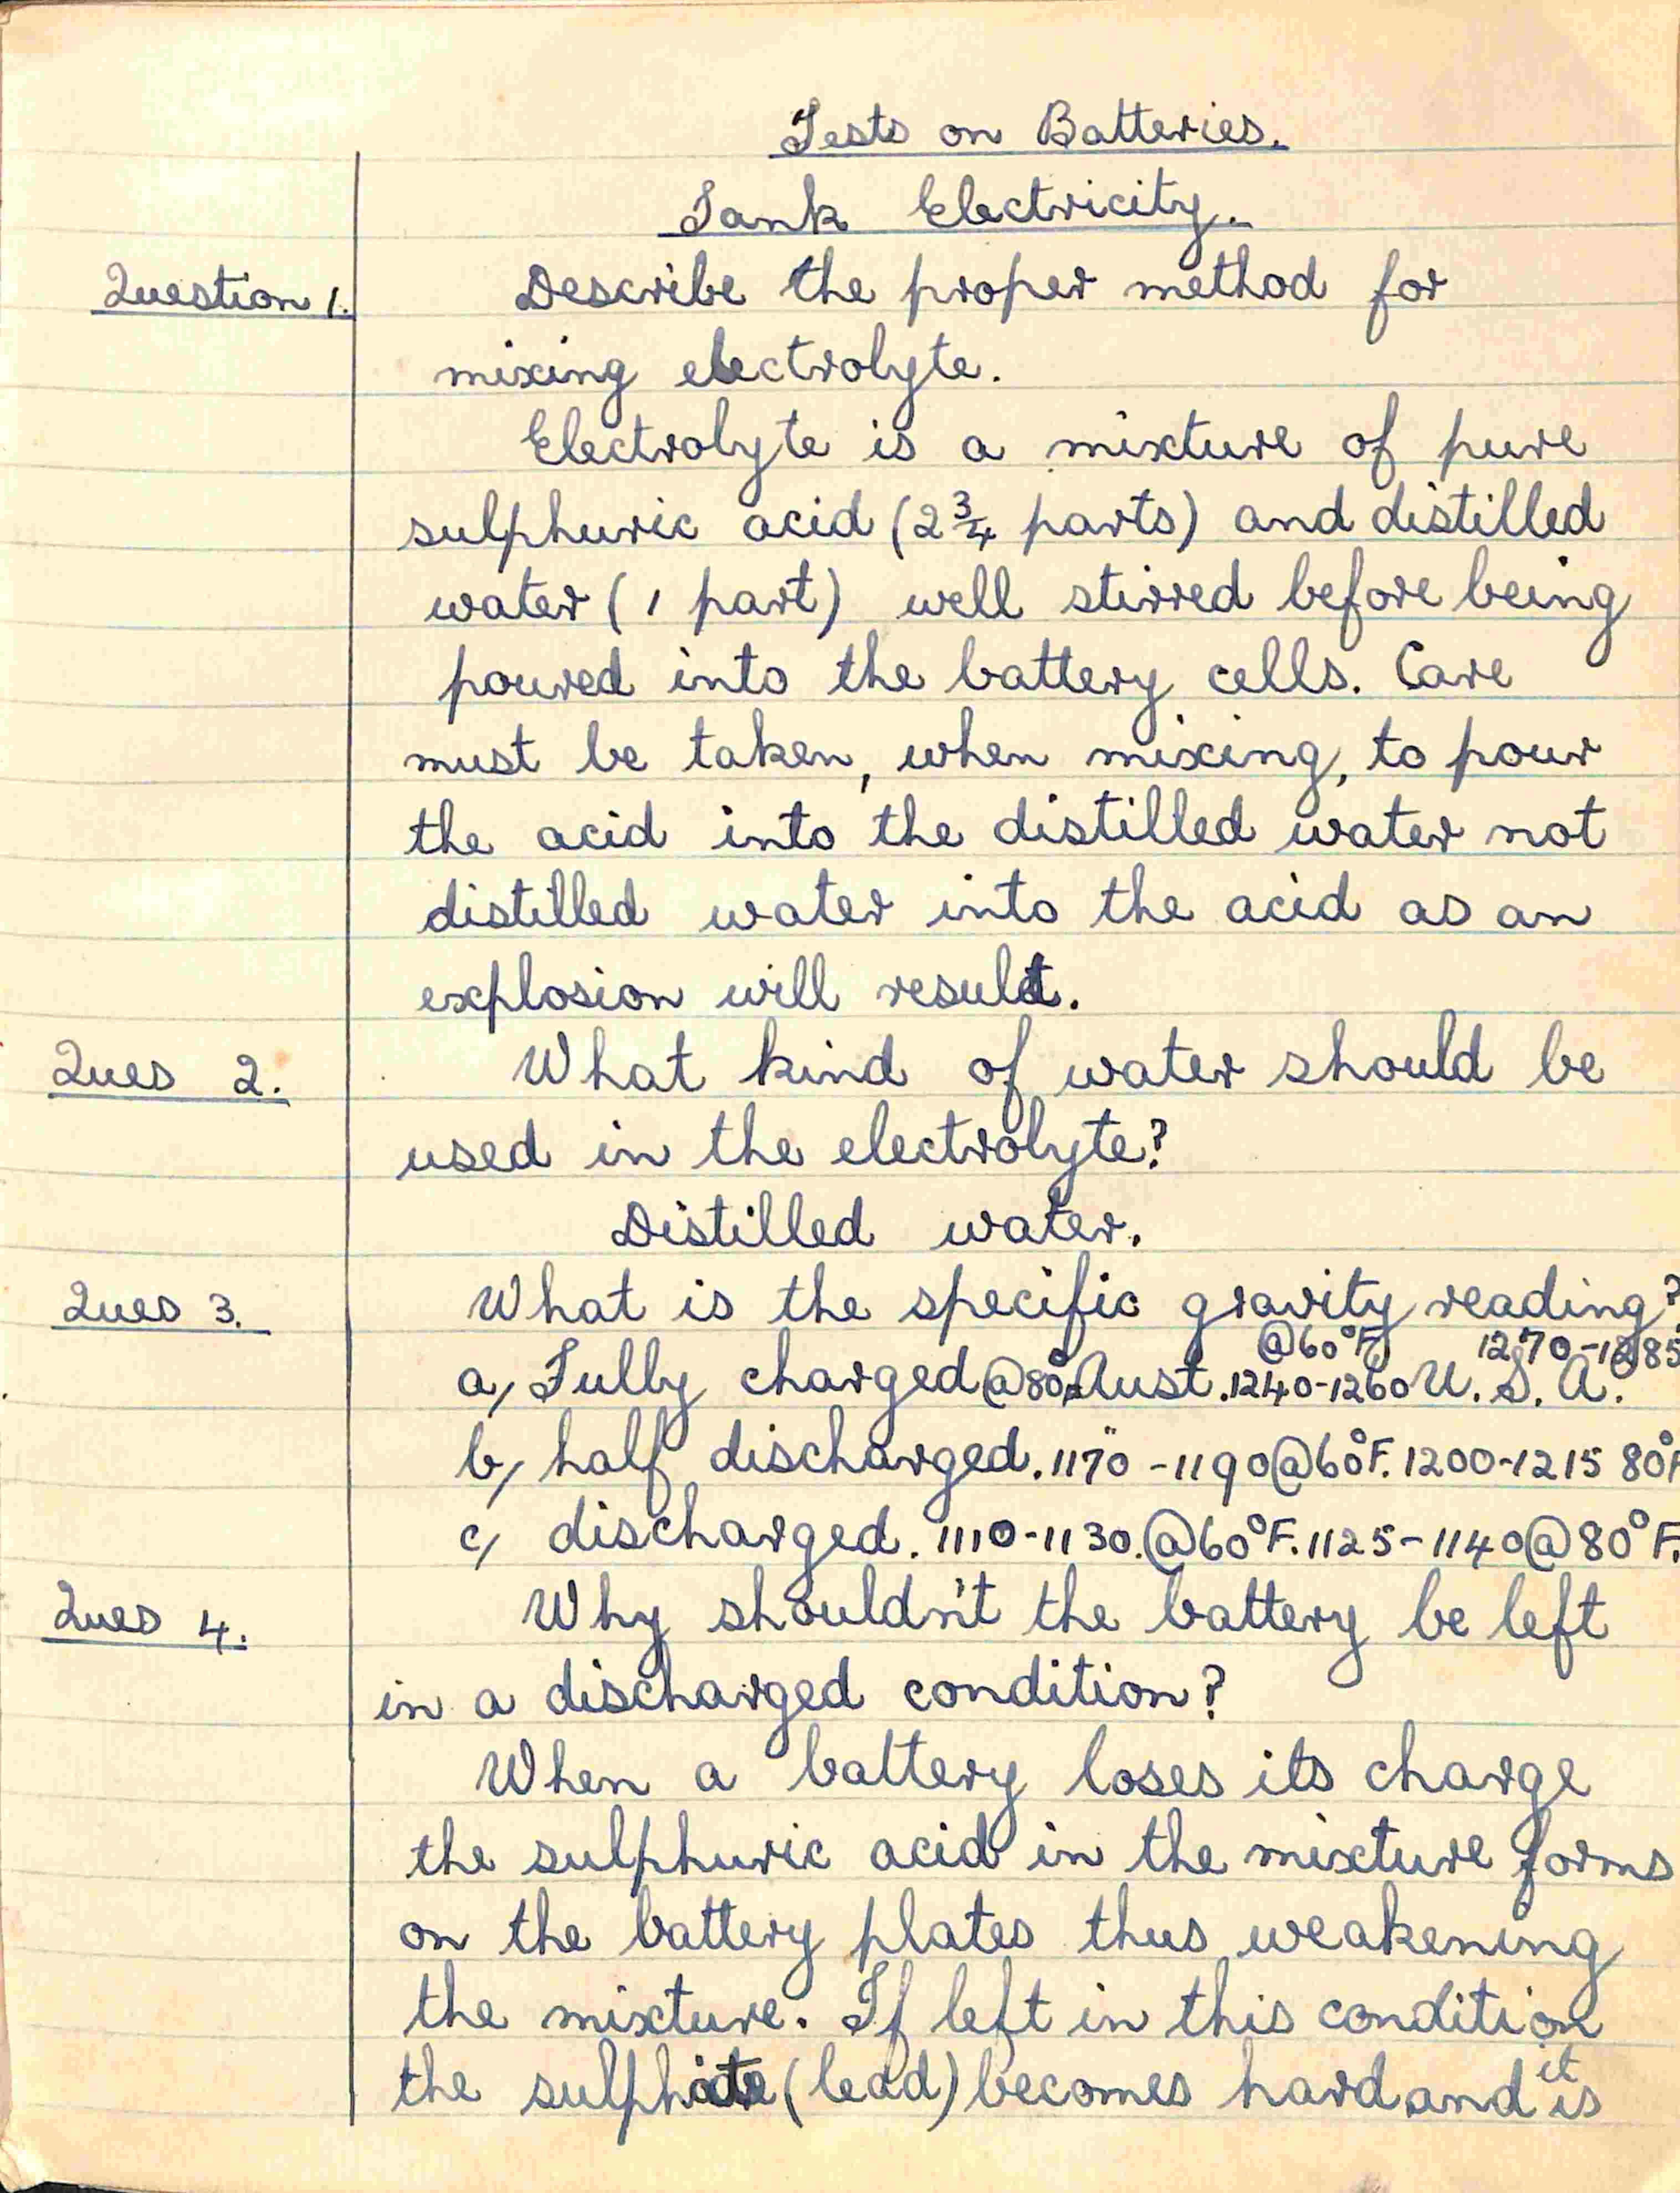 Tests on Batteries.
Tank Electricity.
Question 1. Describe the proper method for
mixing electrolyte.
Electrolyte is a mixture of pure
sulphuric acid (2 3/4 parts) and distilled
water (1 part) well stirred before being
poured into the battery cells. Care
must be taken, when mixing, to pour
the acid into the distilled water not
distilled water into the acid as an
explosion will result.
Ques 2. What kind of water should be
used in the electrolyte?
Distilled water.
Ques 3. What is the specific gravity reading?
@60°F 1270-1285
a, Fully charged @80° Aust. 1240-1260 U. S. A.
b, half discharged. 1170-1190@60°F. 1200-1215 80°F
c, discharged. 1110-1130.@60°F. 1125-1140@80°F.
Ques 4. Why shouldn't the battery be left
in a discharged condition?
When a battery loses its charge
the sulphuric acid in the mixture forms
on the battery plates thus weakening
the mixture. If left in this condition
it
the sulphate (lead) becomes hard and is